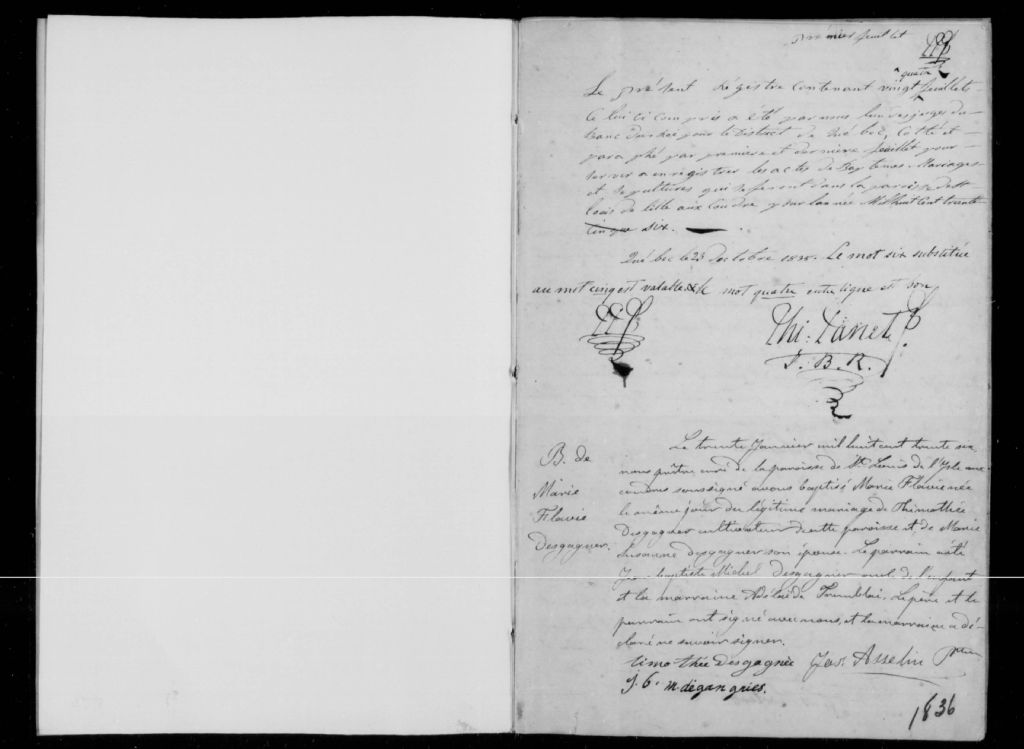 Premier feuillet
quatre
Le présent Régistre contenant vingt feuillets
celui ci compris a été par nous lun des juges du
banc du Roi pour le District de Québec, Cotté et
paraphé par premier et dernière feuillet pour
servir a enregistrer les actes de Baptemes Mariages
et sepultures qui se feront dans la paroisse de St
Louis de lille aux Coudre pour lannée Mil huit Cent trente
cinque six.
Québec le 23 Decbre 1835. Le mot six substituée
au mot cinq est valable & le mot quatre entre ligne est bon
J. B. R.
B. de
Marie
Flavie
Desgagner.
Le trente Janvier mil huit cent trente six
nous prêtre curé de la paroisse de St. Louis de l'Isle aux
coudres soussigné avons baptisé Marie Flavie née
le même jour du légitime mariage de Thimothée
Desgagner cultivateur de cette paroisse et de Marie
Susanne desgagner son épouse. Le parrain a été
Jean baptiste Michel Desgagnier oncle de l'enfant
et la marraine Adélaïde Tremblai, Le père et le
parrain ont signé avec nous, et la marraine a dé-
claré ne savoir signer.
timothée Desgagnée Jos. Asselin Ptre
J. b. m degangnés.
1836